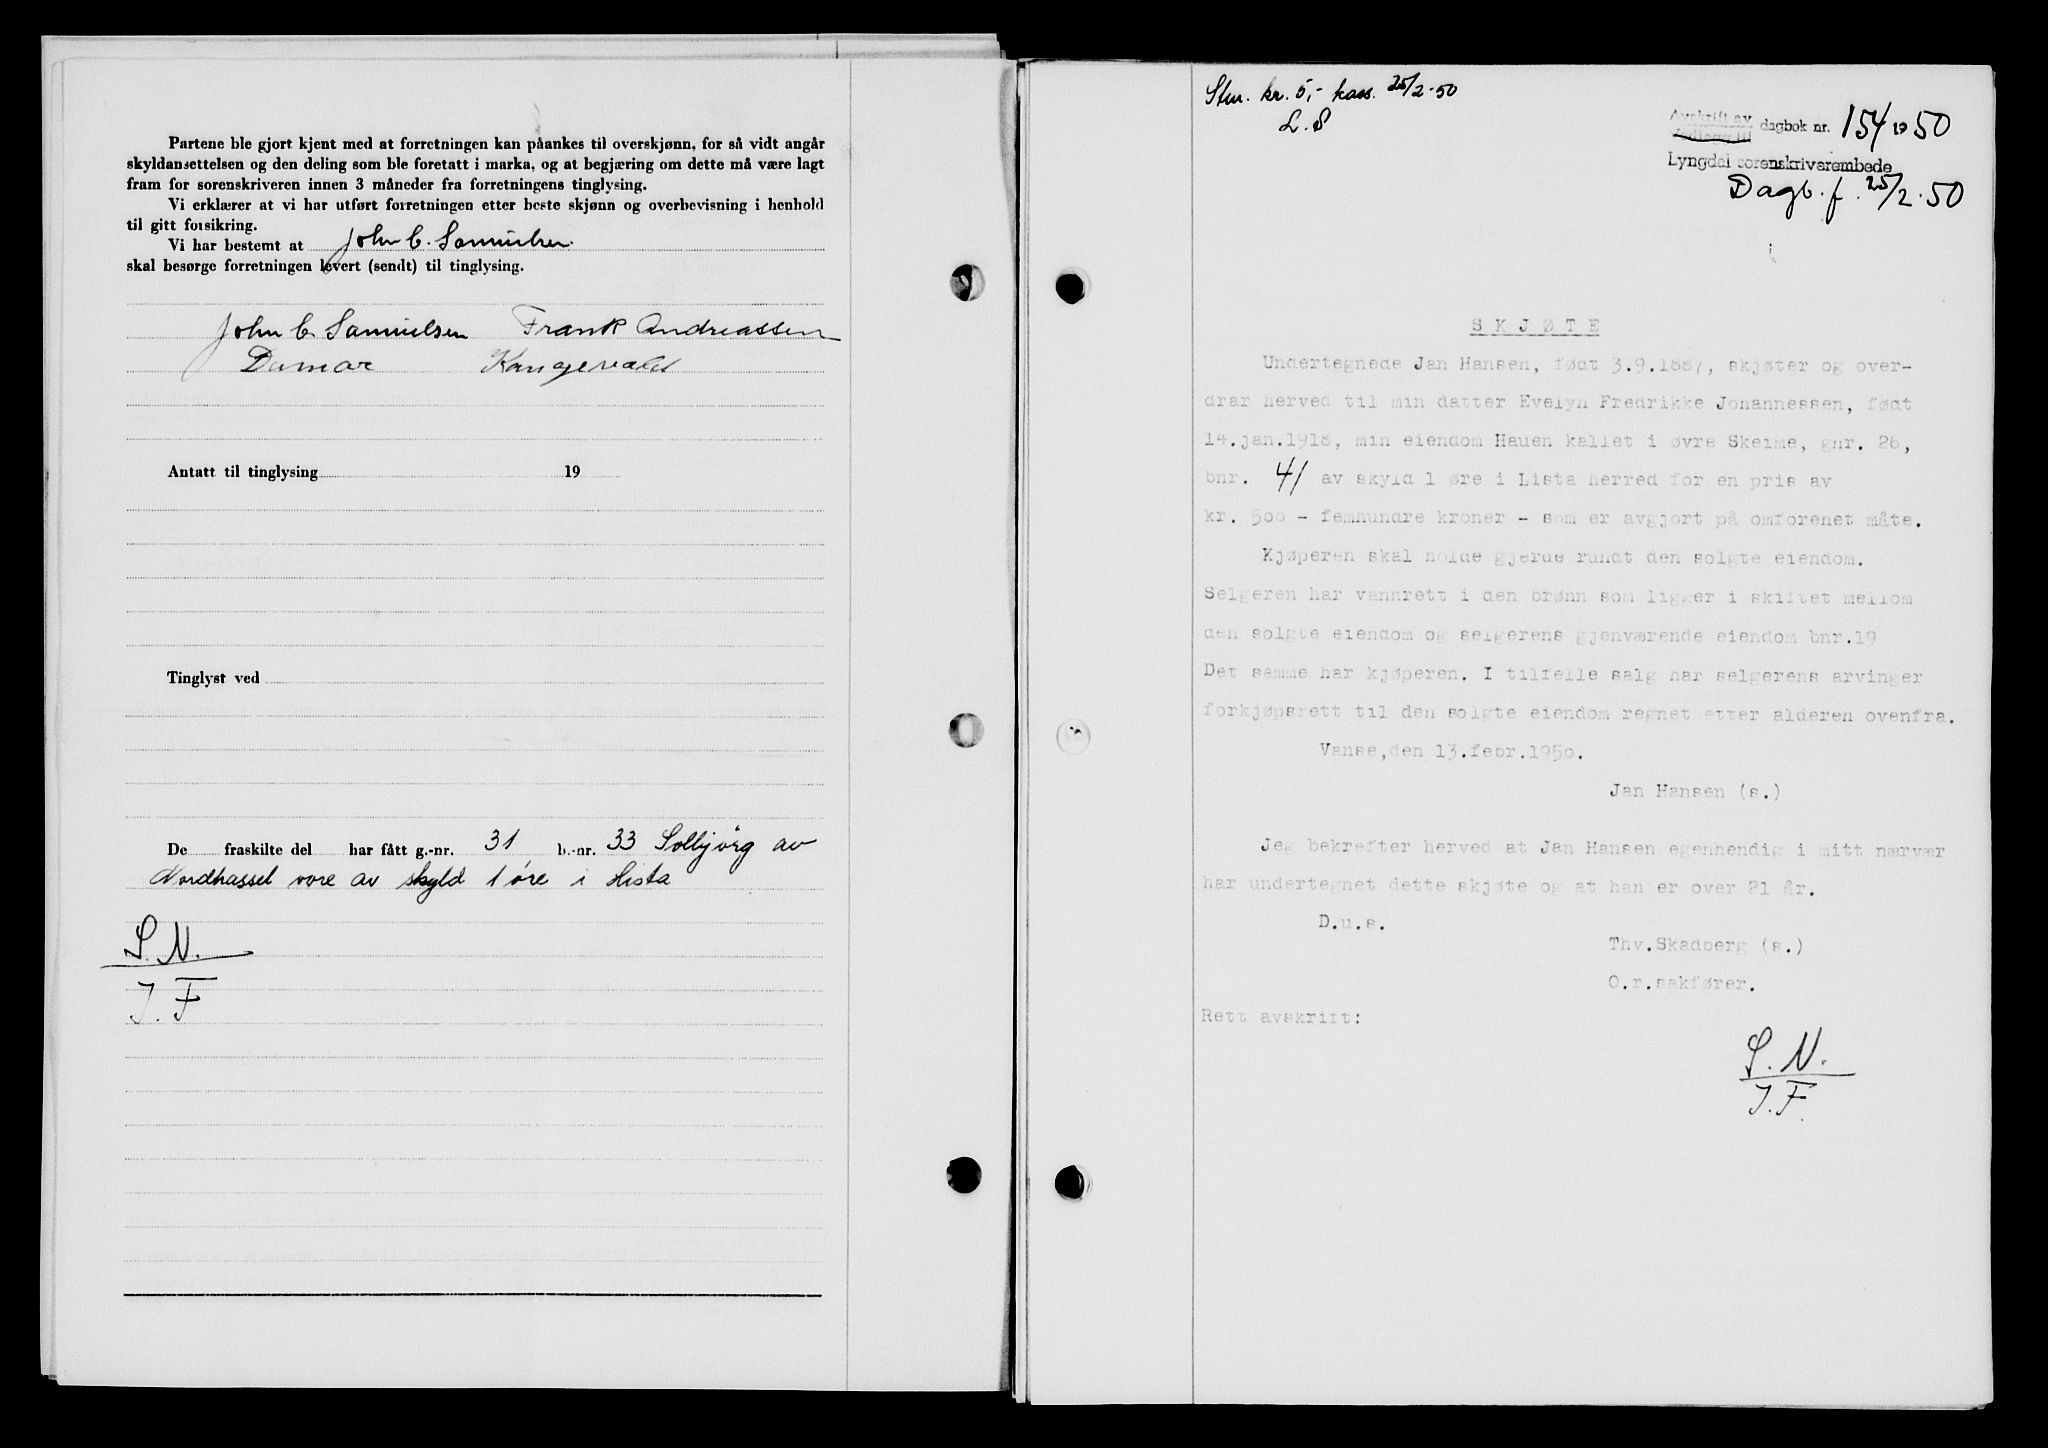 Partene ble gjort kjent med at forretningen kan påankes til overskjønn, for så vidt angår
skyldansettelsen og den deling som ble foretatt i marka, og at begjæring om dette må være lagt
fram for sorenskriveren innen 3 måneder fra forretningens tinglysing.
Vi erklærer at vi har utført forretningen etter beste skjønn og overbevisning i henhold
til gitt forsikring.
Vi har bestemt at John C. Samuelsen
skal besørge forretningen levert (sendt) til tinglysing.
John C. Samuelsen Frank Andreassen
Damar
Antatt til tinglysing 19
Tinglyst ved
De fraskilte del har fått g.-nr. 31 b.-nr. 33 Solbjörg av
Nordhassel vore av skyld 1 øre i Lista
S. N.
J. F
Stm. kr. 5,- kass. 25/2-50
L. S
Avskrift av
Vedlegg til dagbok nr. 154 1950
Lyngdal sorenskriverembede
Dagb. f. 25/2.50
SKJØTE
Undertegnede Jan Hansen, født 3.9.1887, skjøter og over-
drar herved til min datter Evelyn Fredrikke Johannessen, født
14.jan.1918, min eiendom Hauen kallet i øvre Skeime, gnr. 26,
bnr. 41 av skyld 1 øre i Lista herred for en pris av
kr. 500 - femhundre kroner - som er avgjort på omforenet måte.
Kjøperen skal holde gjerde rundt den solgte eiendom.
Selgeren har vannrett i den brønn som ligger i skiftet mellom
den solgte eiendom og selgerens gjenværende eiendom bnr.19
Det samme har kjøperen. I tilfelle salg har selgerens arvinger
forkjøpsrett til den solgte eiendom regnet etter alderen ovenfra.
Vanse,den 13.febr.1950.
Jan Hansen (s.)
Jeg bekrefter herved at Jan Hansen egenhendig i mitt nærvær
har undertegnet dette skjøte og at han er over 21 år.
D.u.s.
Thv.Skadberg (s.)
O.r.sakfører.
Rett avskrift:
S. N.
J. F.